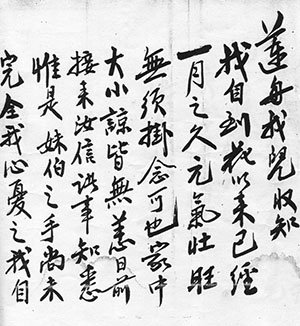 蓮舟我兒收知
我自到茲以來已經
一月之久元氣壯旺
無須掛念可也家中
大小諒皆無恙日前
接來汝信諸事知悉
惟是妹伯之手尚未
完全我心憂之我自